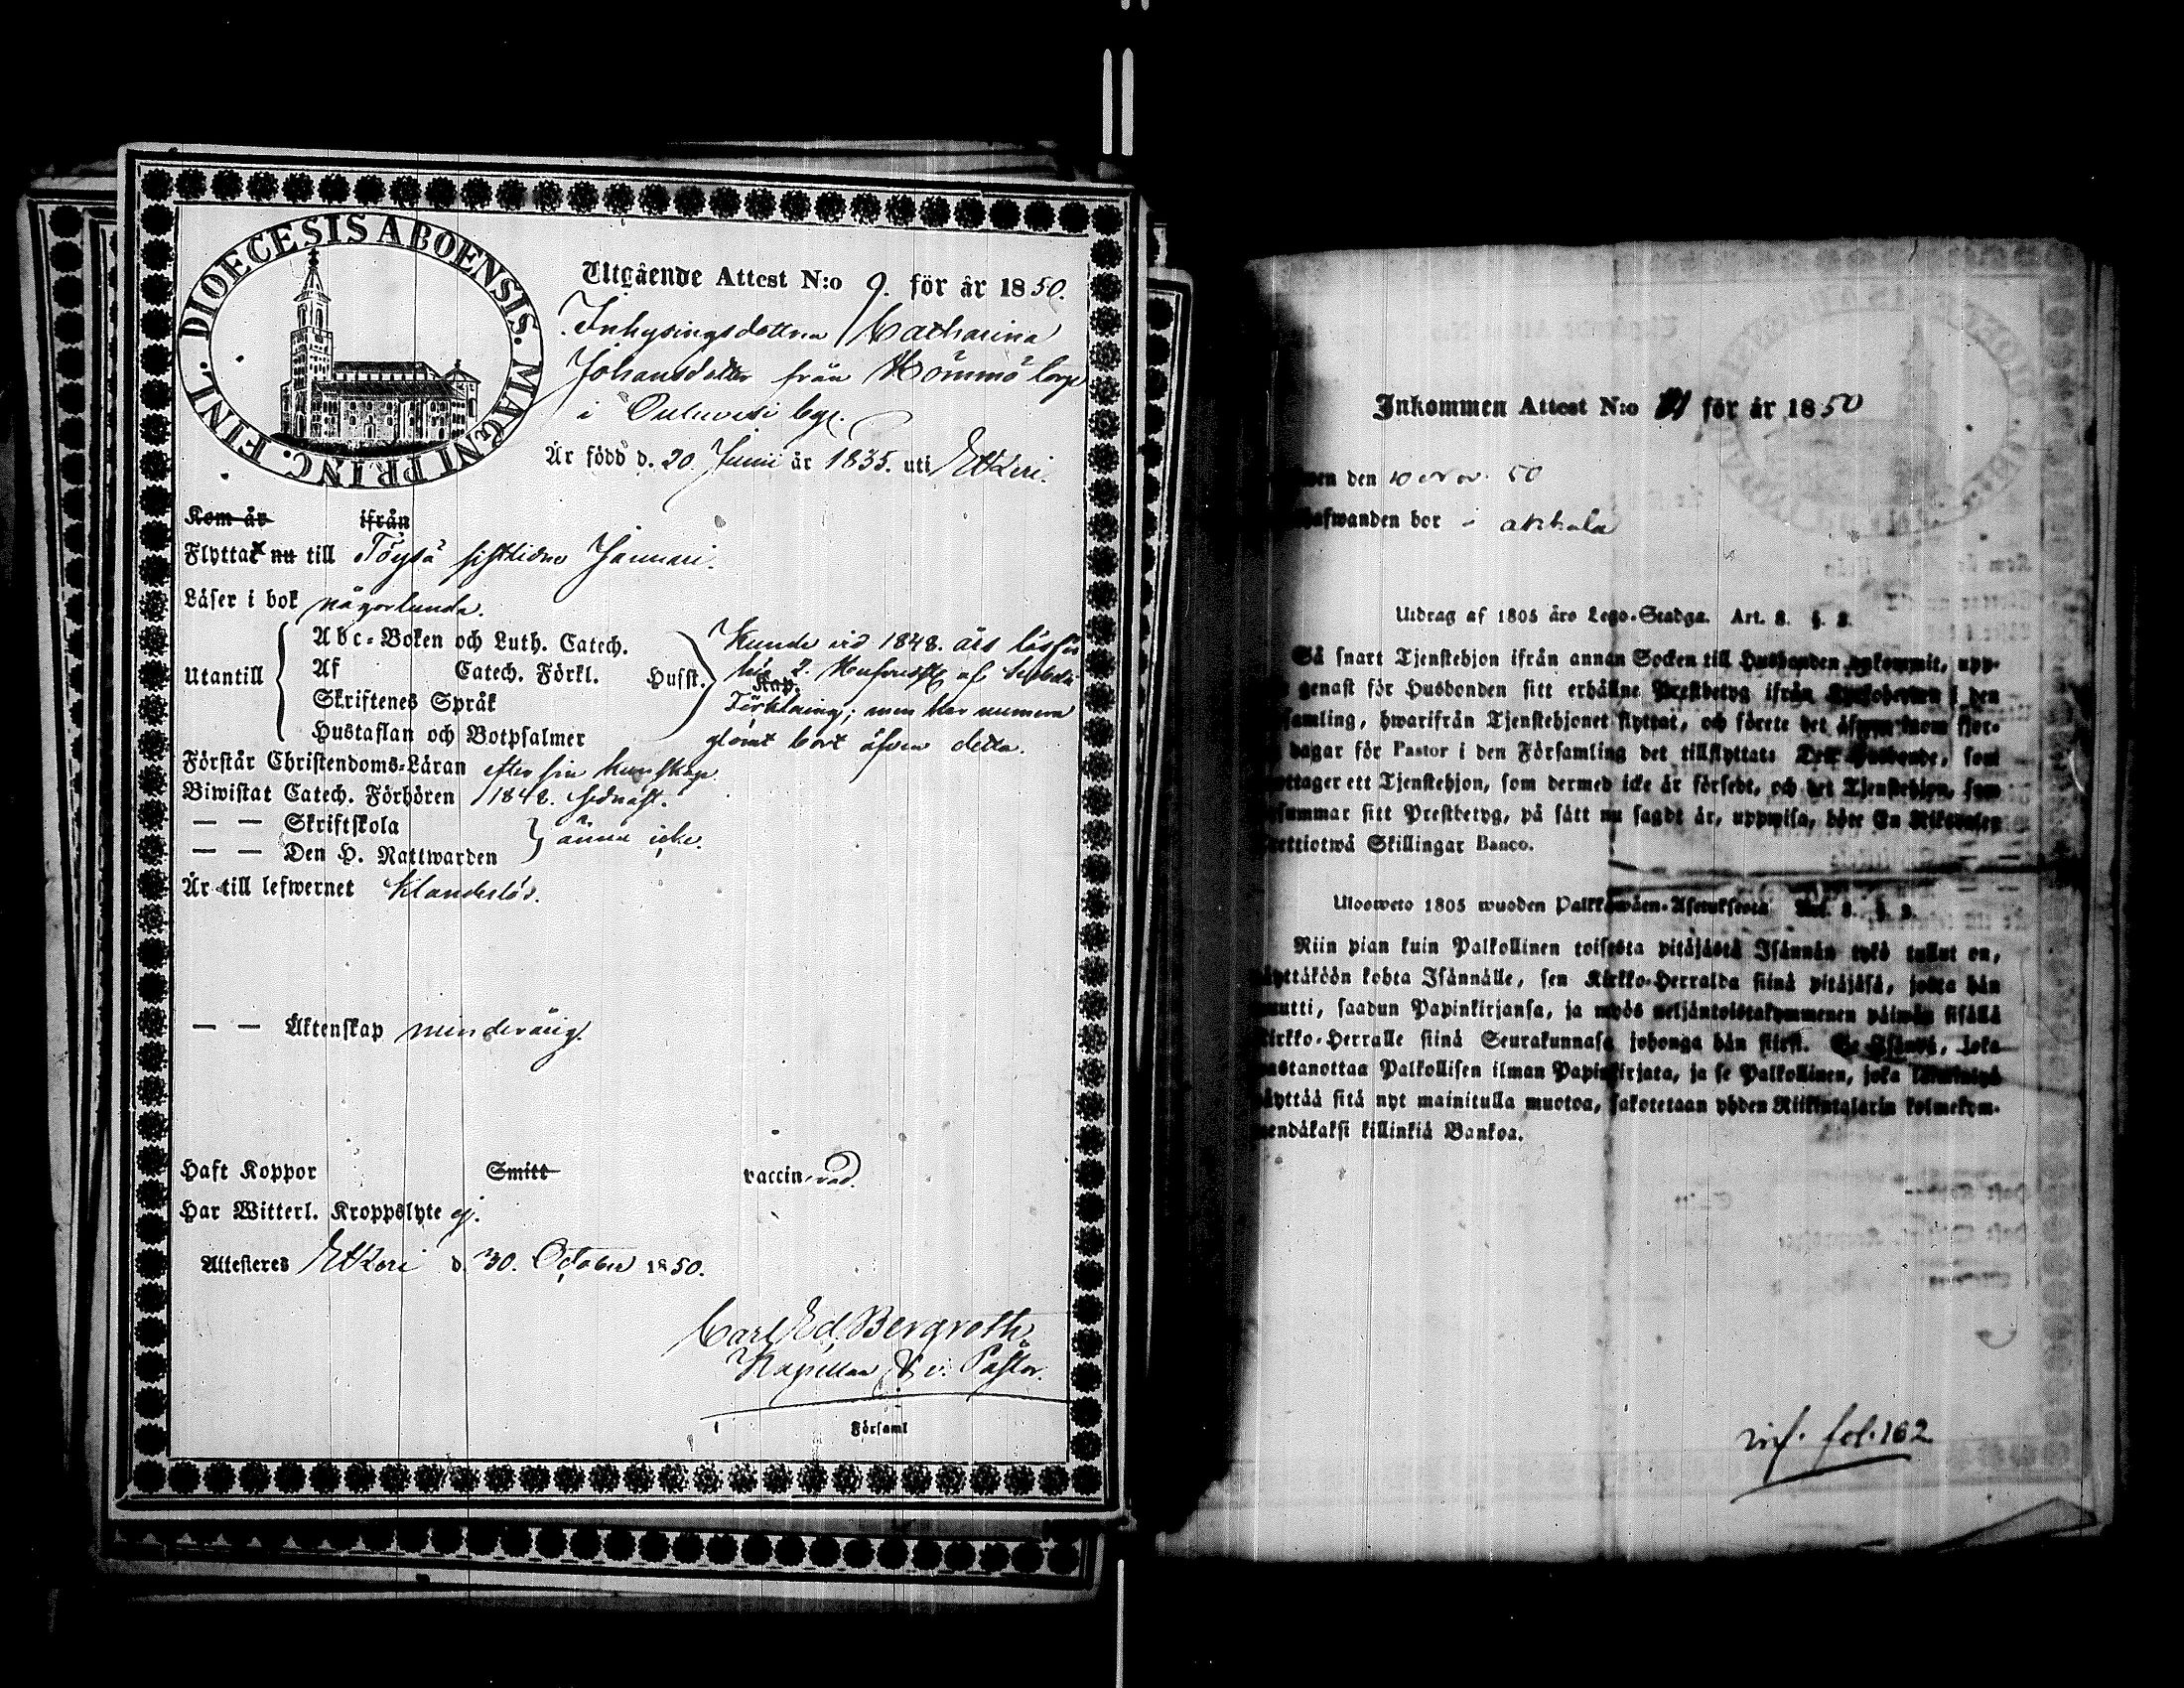 DIOECESIS ABOENSIS. MAGNI PRINC. FINL.
Utgående Attest N:o 9. för år 1850.
Inhysingsdottren Catharina
Johansdotter från Hömmö torp
i Ouluvesi by.
Är född d. 20. Junii år 1835. uti Etseri.
Kom år ifrån
Flyttat nu till Töysä sistlidne Januari.
Läser i bok någorlunda.
Utantill
Abc-Boken och Luth. Catech.
Af Catech. Förkl. Husst.
Skriftenes Språk
Hustaflan och Botpsalmer
Kunde vid 1848. års läsför
hör 2. Hufvudst. af
Kap.
Förklaring; men har numera
glömt bort äfven detta.
Förstår Christendoms-Läran efter sin kunskap.
Biwistat Catech. Förhören 1848. sednast.
— — Skriftskola
— — Den H. Nattwarden
ännu icke.
Är till lefwernet Klanderlös.
— — Äktenskap minderårig.
Haft Koppor Smitt vaccinerad.
Har Witterl. Kroppslyte ej.
Attesteres Etseri d. 30. October 1850.
Carl Ed. Bergroth
Kapellan & v. Pastor.
i Församl
Inkommen Attest N:o för år 1850
den 10 Nov. 50
bor i Akkala
Utdrag af 1805 års Lego-Stadga. Art. 8. §. 2.
Så snart Tjenstehjon ifrån annan Socken till Husbonden ankommit, upp-
genast för Husbonden sitt erhållne Prestbetyg ifrån Kyrkoherden i den
samling, hwarifrån Tjenstehjonet flyttat, och förete det äfwen inom fjor-
dagar för Pastor i den Församling det tillflyttat. Den Husbonde, som
ett Tjenstehjon, som dermed icke är försedt, och det Tjenstehjon, som
summar sitt Prestbetyg, på sätt nu sagdt är, uppwisa, böte En Riksdaler
Skillingar Banco.
Ulosweto 1805 wuoden Palkkawäen-Asetuksesta Art. 8. §. 2.
Niin pian kuin Palkollinen toisesta pitäjästä Isännän tykö tullut on,
kohta Isännälle, sen Kirkko-Herralda siinä pitäjäsä, josta hän
muutti, saadun Papinkirjansa, ja myös neljäntoistakymmenen päiwän sisällä
Kirkko-Herralle siinä Seurakunnasa johonga hän siirsi. Se Isäntä, joka
wastanottaa Palkollisen ilman Papinkirjata, ja se Palkollinen, joka
sitä nyt mainitulla muotoa, sakotetaan yhden Riikintalarin kolmekym-
mendäkaksi killinkiä Bankoa.
inf. fol. 162